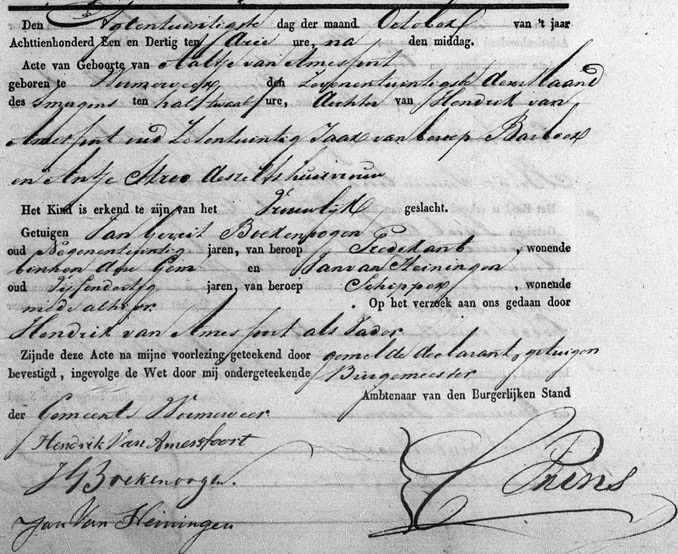 Den Agtentwintigste dag der maand October van 't jaar
Achttienhonderd Een en Dertig ten Drie ure, na den middag.
Acte van Geboorte van Aaltje van Amesfort
geboren te Wormerveer den Zevenentwintigste dezer Maand
des smorgens ten half twaalf ure, dochter van Hendrik van
Amesfort oud Zesentwintig Jaar van beroep
en Antje deszelfs huisvrouw
Het Kind is erkend te zijn van het Vrouwlijk geslacht.
Getuigen Jan Gerrit Boekenoogen
oud Negenentwintig jaren, van beroep Predikant, wonende
binnen deze Gem en Jan van Heiningen
oud Vijfendertig jaren, van beroep Schipper, wonende
mede alhier. Op het verzoek aan ons gedaan door
Hendrik van Amesfort als Vader
Zijnde deze Acte na mijne voorlezing geteekend door gemelde declarant, getuigen
bevestigd, ingevolge de Wet door mij ondergeteekende Burgemeester
Ambtenaar van den Burgerlijken Stand
der Gemeente Wormerveer.
Hendrik Van Amesfoort
JGBoekenoogen.
Jan Van Heiningen
Prins